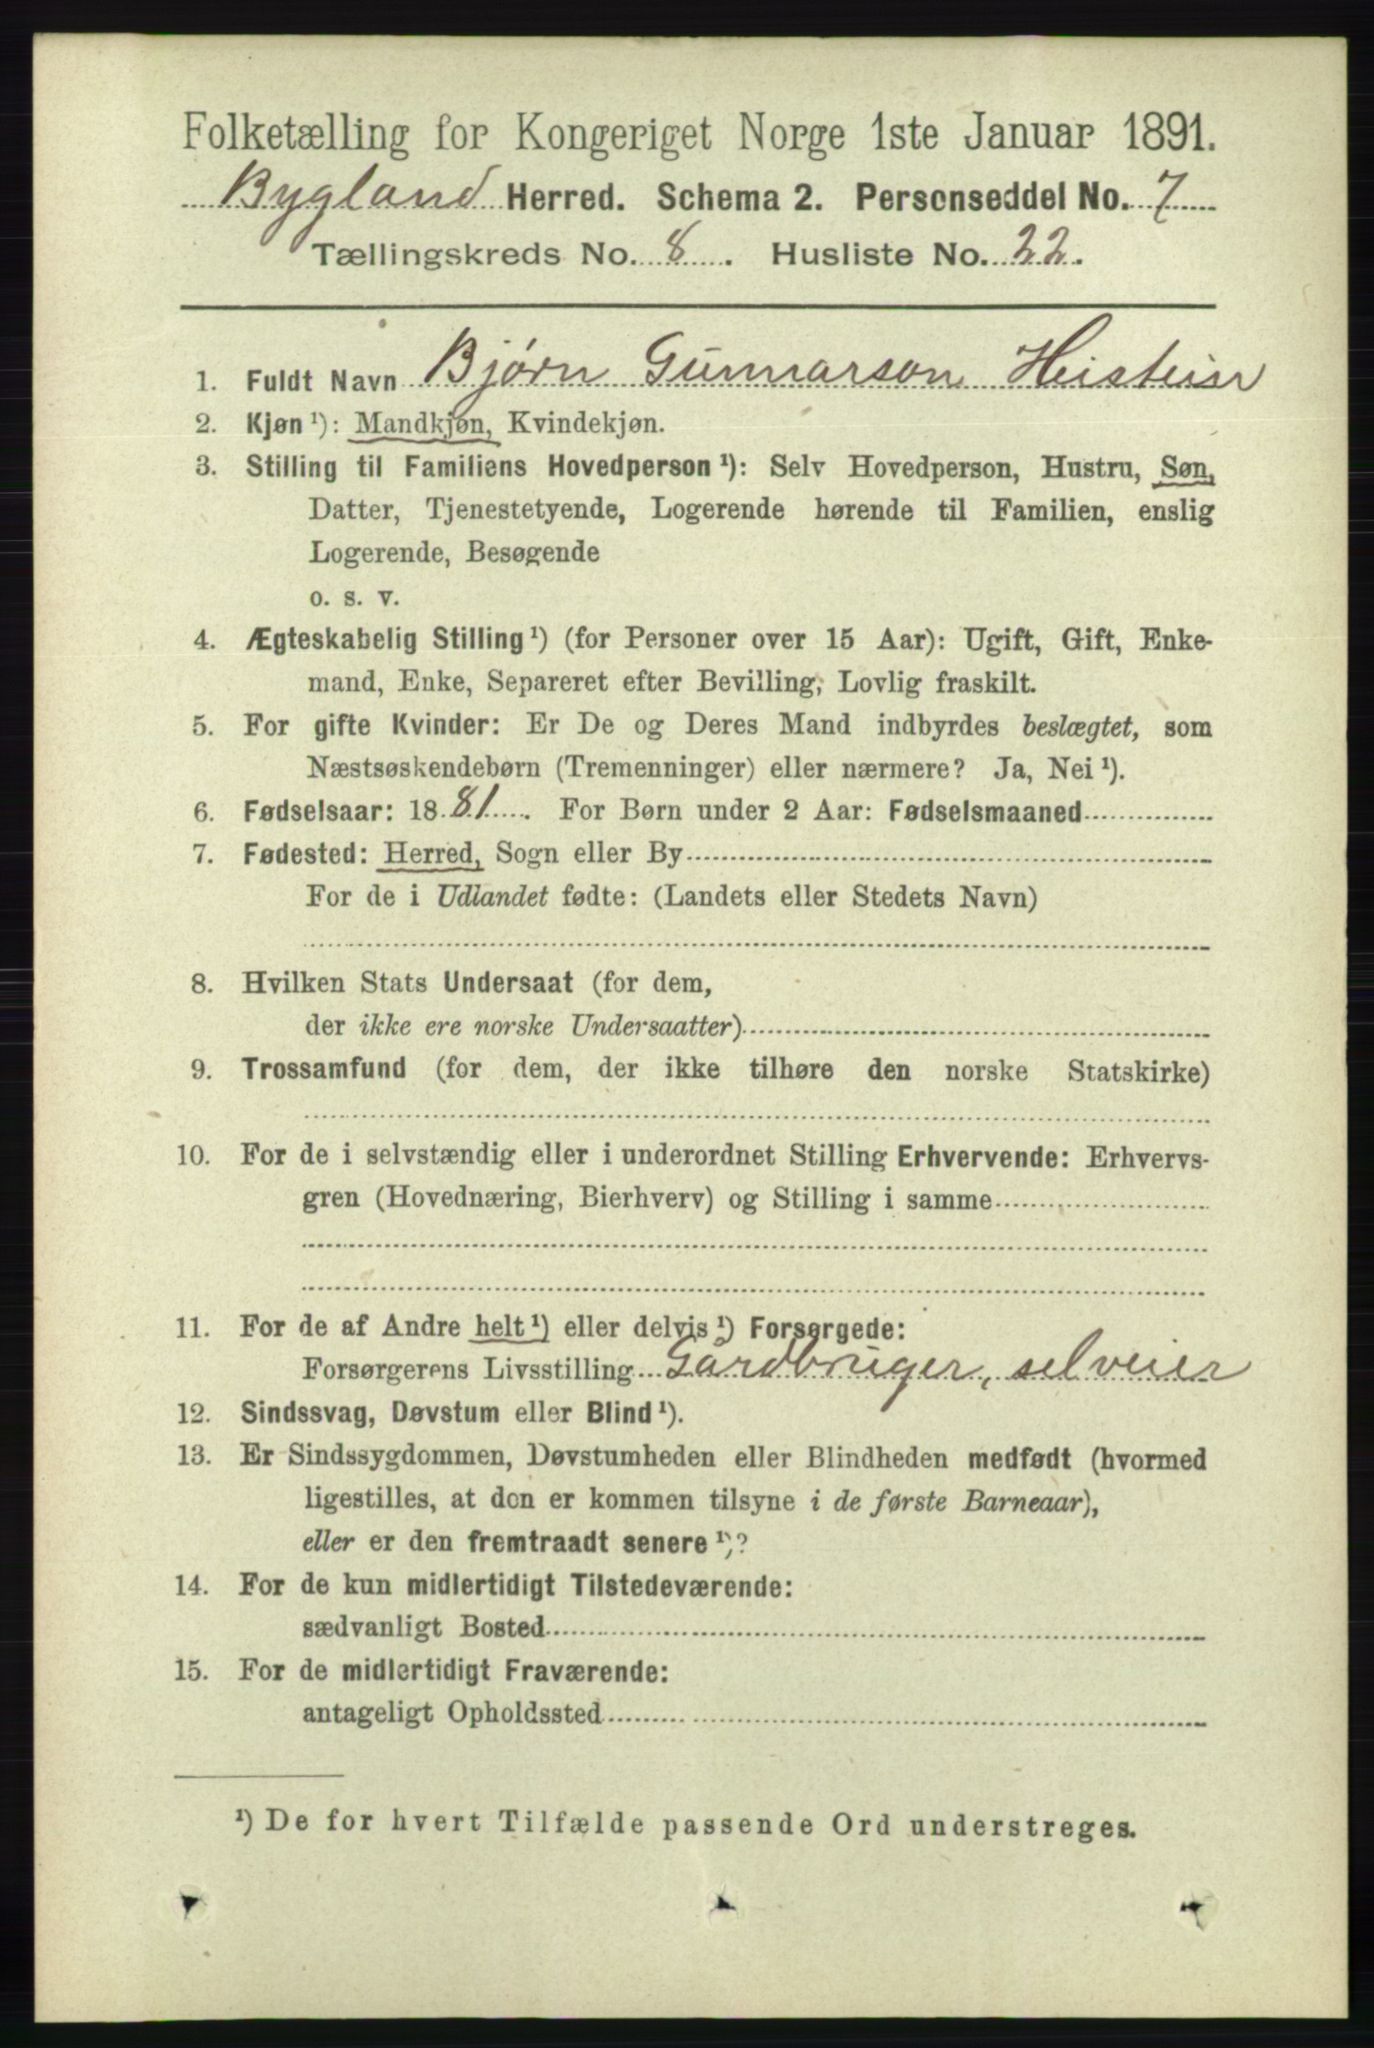 Folketælling for Kongeriget Norge 1ste Januar 1891.
Bygland Herred. Schema 2. Personseddel No. 7
Tællingskreds No. 8. Husliste No. 22.
1. Fuldt Navn Bjørn Gunnarson
2. Kjøn ¹): Mandkjøn, Kvindekjøn.
3. Stilling til Familiens Hovedperson ¹): Selv Hovedperson, Hustru, Søn,
Datter, Tjenestetyende, Logerende hørende til Familien, enslig
Logerende, Besøgende
o. s. v.
4. Ægteskabelig Stilling ¹) (for Personer over 15 Aar): Ugift, Gift, Enke-
mand, Enke, Separeret efter Bevilling, Lovlig fraskilt.
5. For gifte Kvinder: Er De og Deres Mand indbyrdes beslægtet, som
Næstsøskendebørn (Tremenninger) eller nærmere? Ja, Nei ¹).
6. Fødselsaar: 1881. For Børn under 2 Aar: Fødselsmaaned
7. Fødested: Herred, Sogn eller By
For de i Udlandet fødte: (Landets eller Stedets Navn)
8. Hvilken Stats Undersaat (for dem,
der ikke ere norske Undersaatter)
9. Trossamfund (for dem, der ikke tilhøre den norske Statskirke)
10. For de i selvstændig eller i underordnet Stilling Erhvervende: Erhvervs-
gren (Hovednæring, Bierhverv) og Stilling i samme
11. For de af Andre helt ¹) eller delvis ¹) Forsørgede:
Forsørgerens Livsstilling Gårdbruger, selveier
12. Sindssvag, Døvstum eller Blind ¹).
13. Er Sindssygdommen, Døvstumheden eller Blindheden medfødt (hvormed
ligestilles, at den er kommen tilsyne i de første Barneaar),
eller er den fremtraadt senere ¹)?
14. For de kun midlertidigt Tilstedeværende:
sædvanligt Bosted
15. For de midlertidigt Fraværende:
antageligt Opholdssted
¹) De for hvert Tilfælde passende Ord understreges.